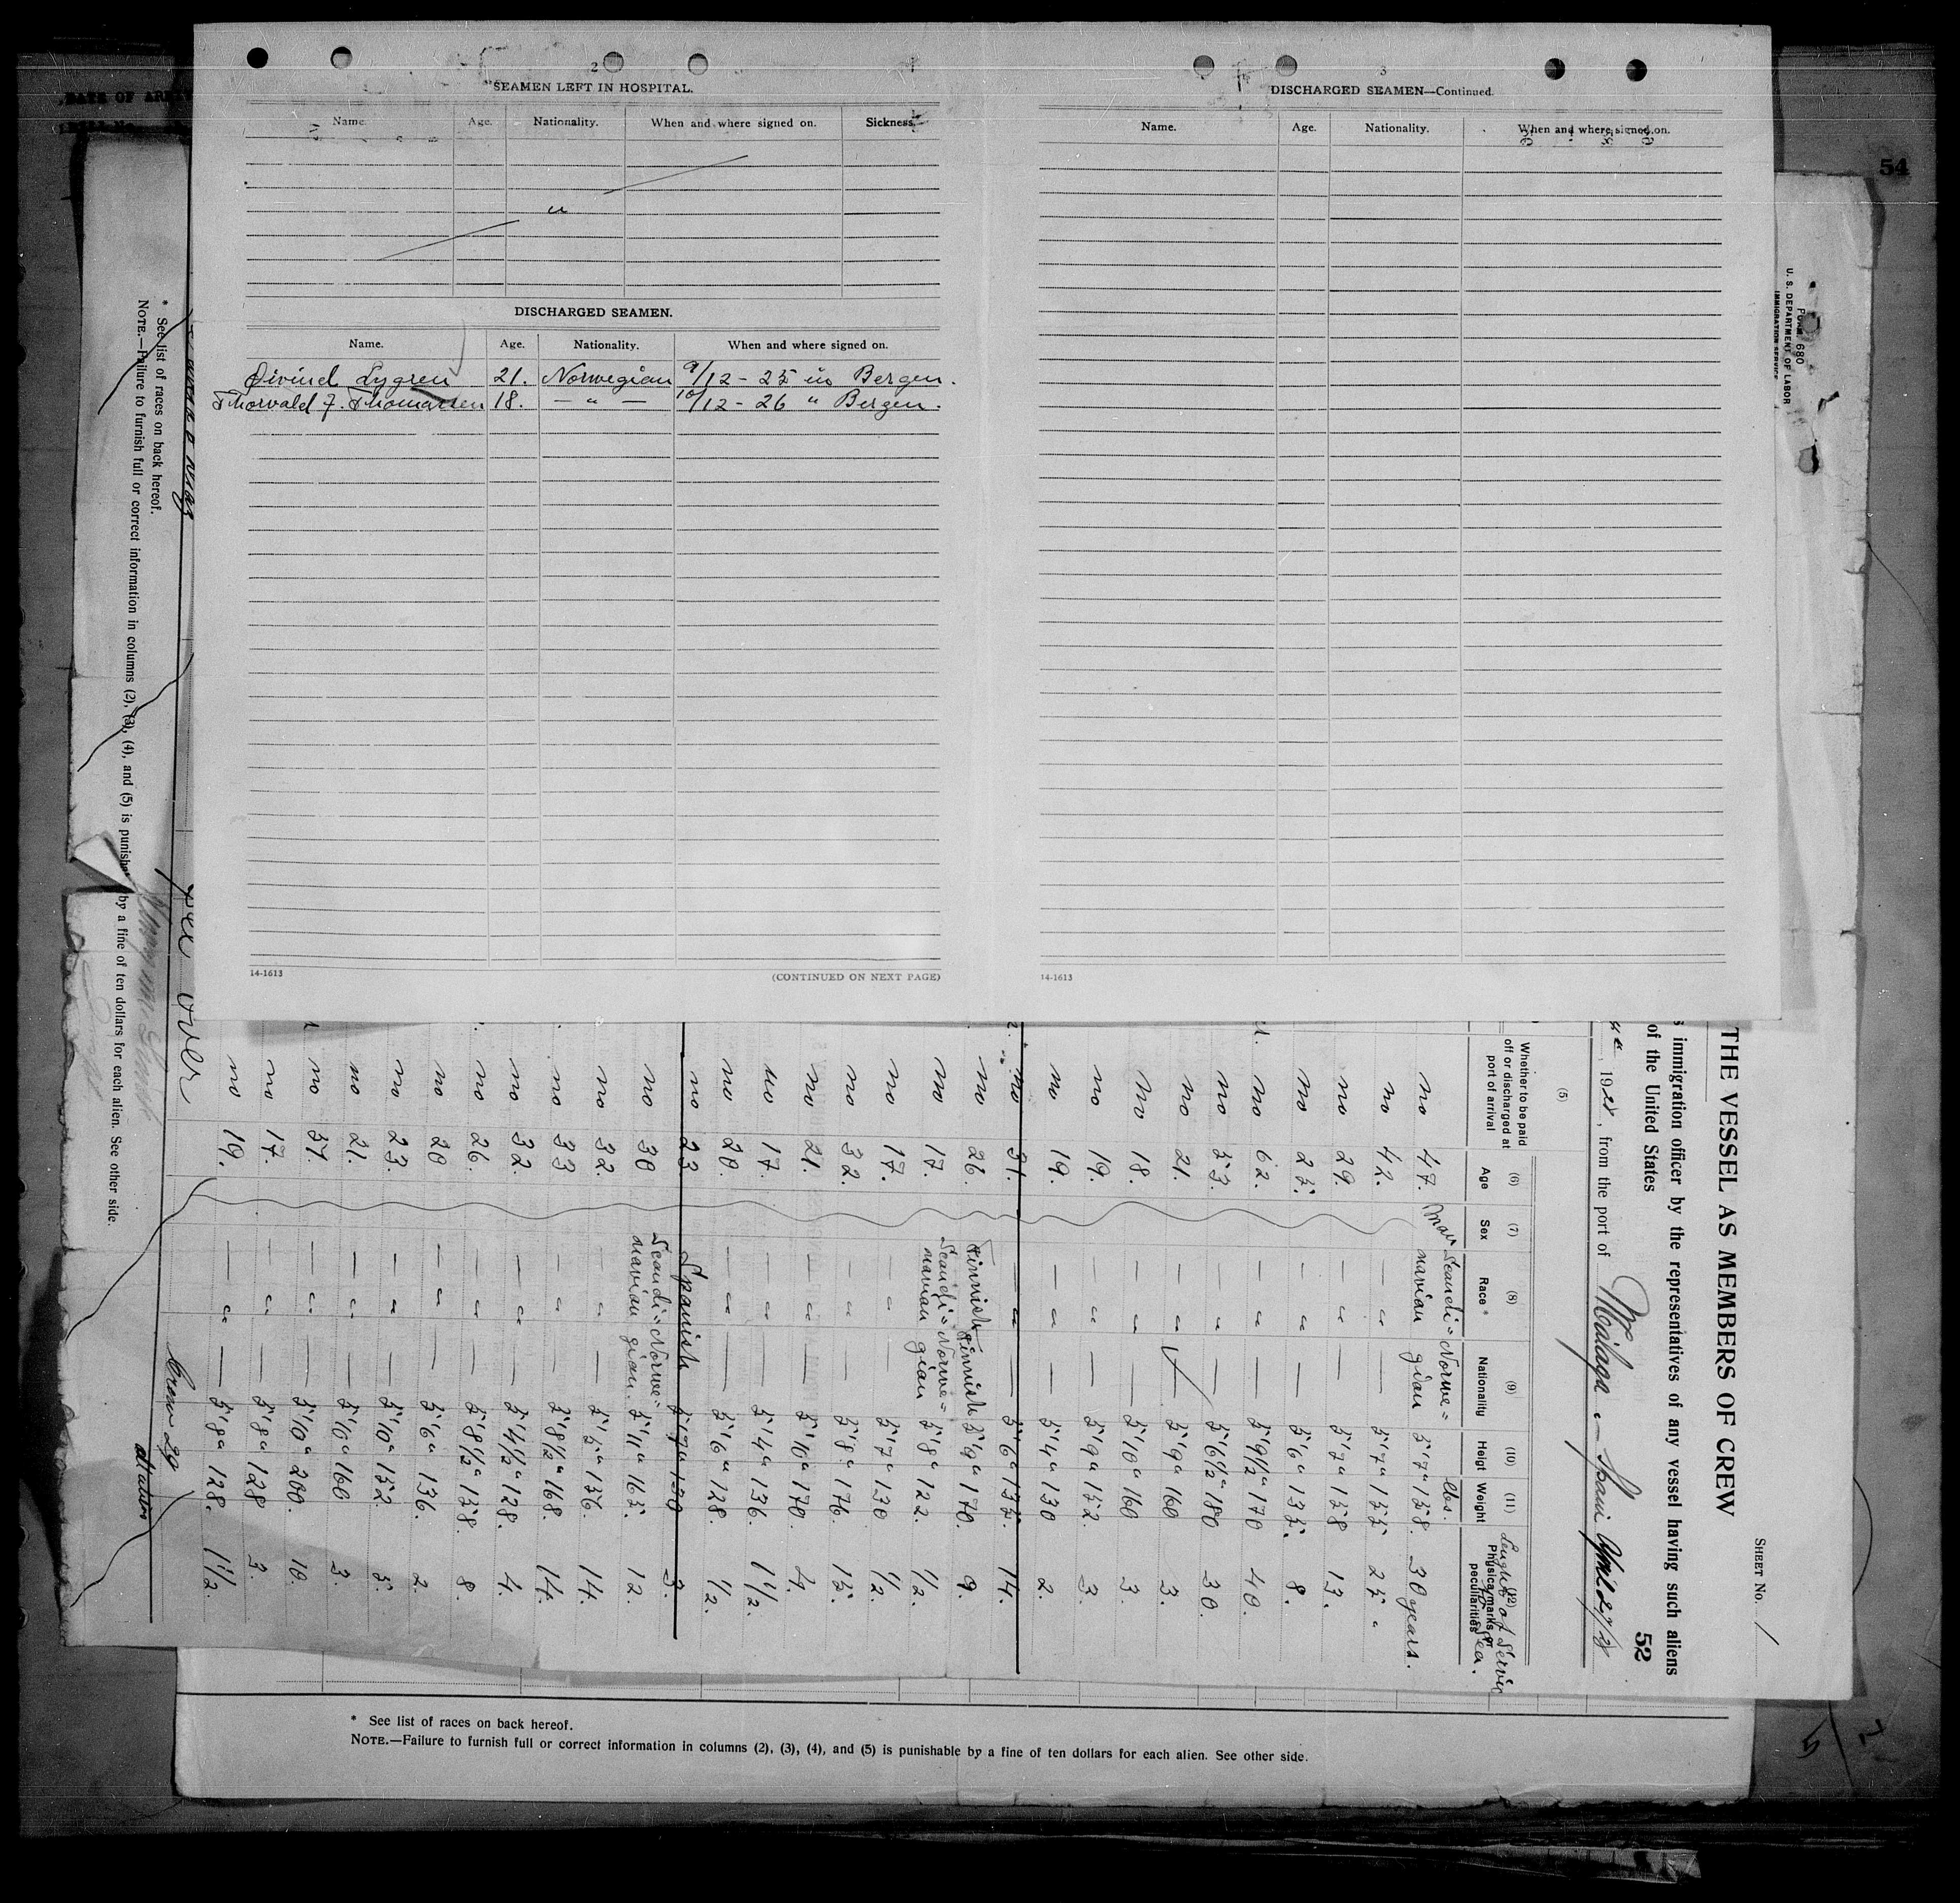 54
2
SEAMEN LEFT IN HOSPITAL.
Name. Age. Nationality. When and where signed on. Sickness.
"
DISCHARGED SEAMEN.
Name. Age. Nationality. When and where signed on.
Øivind Lygren 21. Norwegian 9/12 - 25 in Bergen.
Thorvald F. Thomassen 18. — " — 10/12 - 26 " Bergen.
14-1613 (CONTINUED ON NEXT PAGE)
3
DISCHARGED SEAMEN—Continued.
Name. Age. Nationality. When and where signed on.
14-1613
FORM 680
U. S. DEPARTMENT OF LABOR
IMMIGRATION SERVICE
SHEET No. 1
THE VESSEL AS MEMBERS OF CREW
immigration officer by the representatives of any vessel having such aliens
of the United States
52
, from the port of Malaga - Spain
(5) (6) (7) (8) (9) (10) (11) (12)
Whether to be paid off or discharged at port of arrival Age Sex Race* Nationality Heigt Weight Physical marks or peculiarities
lbs. Length of Servic to Sea.
no 47. Man Scandi= navian Norwe= gian 5'7" 158. 30 years.
no 42. — " — 5'7" 155 25 "
no 29. — " — 5'7" 158 13.
no 25. — " — 5'6" 135. 8.
no 62. — " — 5'9½" 170 40.
no 53. — " — 5'6½" 180 30.
no 21. — " — 5'9" 160 3.
no 18. — " — 5'10" 160 3.
no 19. — " — 5'9" 152. 3.
no 19. — " — 5'4" 130 2.
no 31. — " — 5'6" 135. 14.
no 26. Finnish Finnish 5'9" 170. 9.
no 17. Scandi= navian Norwe= gian 5'8" 122. 1/2.
no 17. — " — 5'7" 130 1/2.
no 32. — " — 5'8" 176. 15.
no 21. — " — 5'10" 170. 4.
no 17. — " — 5'4" 136. 1 1/2.
no 20. — " — 5'6" 128. 1/2.
no 23 Spanish 5'7" 130 3.
no 30 Scandi= navian Norwe= gian. 5'11" 165. 12.
no 32. — " — 5'5" 156. 14.
no 33 — " — 5'8½" 168. 14.
no 32. — " — 5'4½" 128. 4.
no 26. — " — 5'8½" 158. 8.
no 20 — " — 5'6" 136. 2.
no 23. — " — 5'10" 152. 5.
no 21. — " — 5'10" 160 3.
no 37. — " — 5'10" 200. 10.
no 17. — " — 5'8" 128 3.
no 19. — " — 5'8" 128. 1 1/2.
see over
Crew 29
* See list of races on back hereof.
NOTE.—Failure to furnish full or correct information in columns (2), (3), (4), and (5) is punishable by a fine of ten dollars for each alien. See other side.
* See list of races on back hereof.
NOTE.—Failure to furnish full or correct information in columns (2), (3), (4), and (5) is punishable by a fine of ten dollars for each alien. See other side.